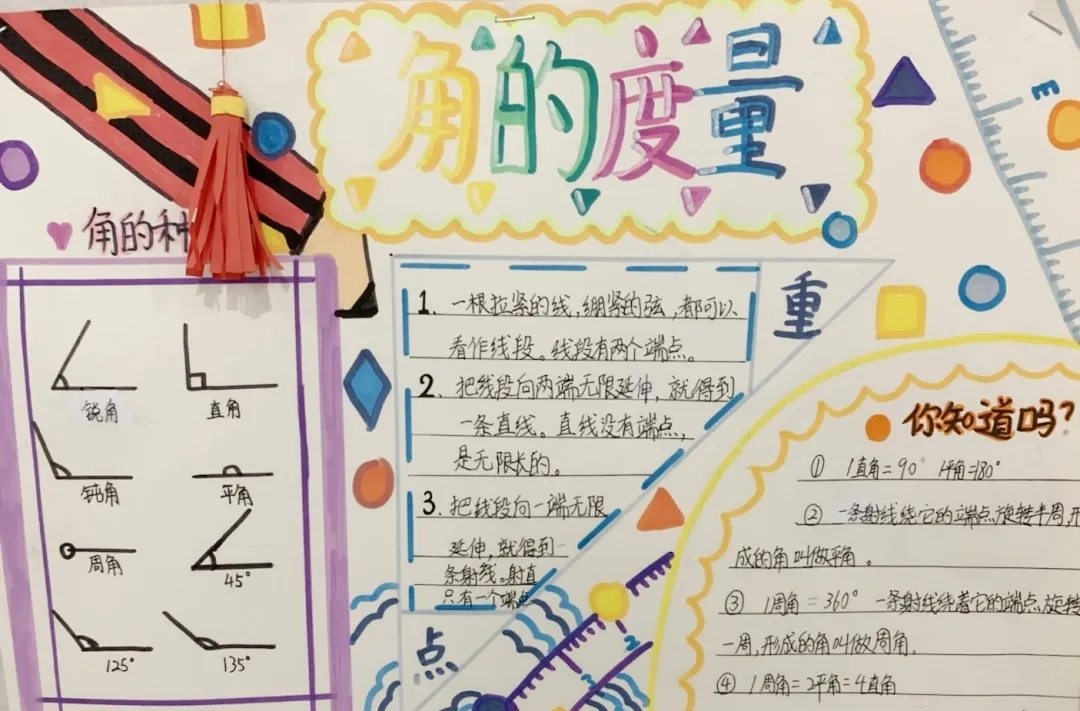 角的度量
角的种
锐角
直角
钝角
平角
周角
45°
125°
135°
重
点
1. 一根拉紧的线,绷紧的弦,都可以
看作线段。线段有两个端点。
2. 把线段向两端无限延伸,就得到
一条直线。直线没有端点,
是无限长的。
3. 把线段向一端无限
延伸,就得到一
条射线。射直
只有一个端点
E
2
你知道吗?
① 1直角=90° 1平角=180°
② 一条射线绕它的端点旋转半周,形
成的角叫做平角。
③ 1周角=360° 一条射线绕着它的端点旋转
一周,形成的角叫做周角.
④ 1周角=2平角=4直角